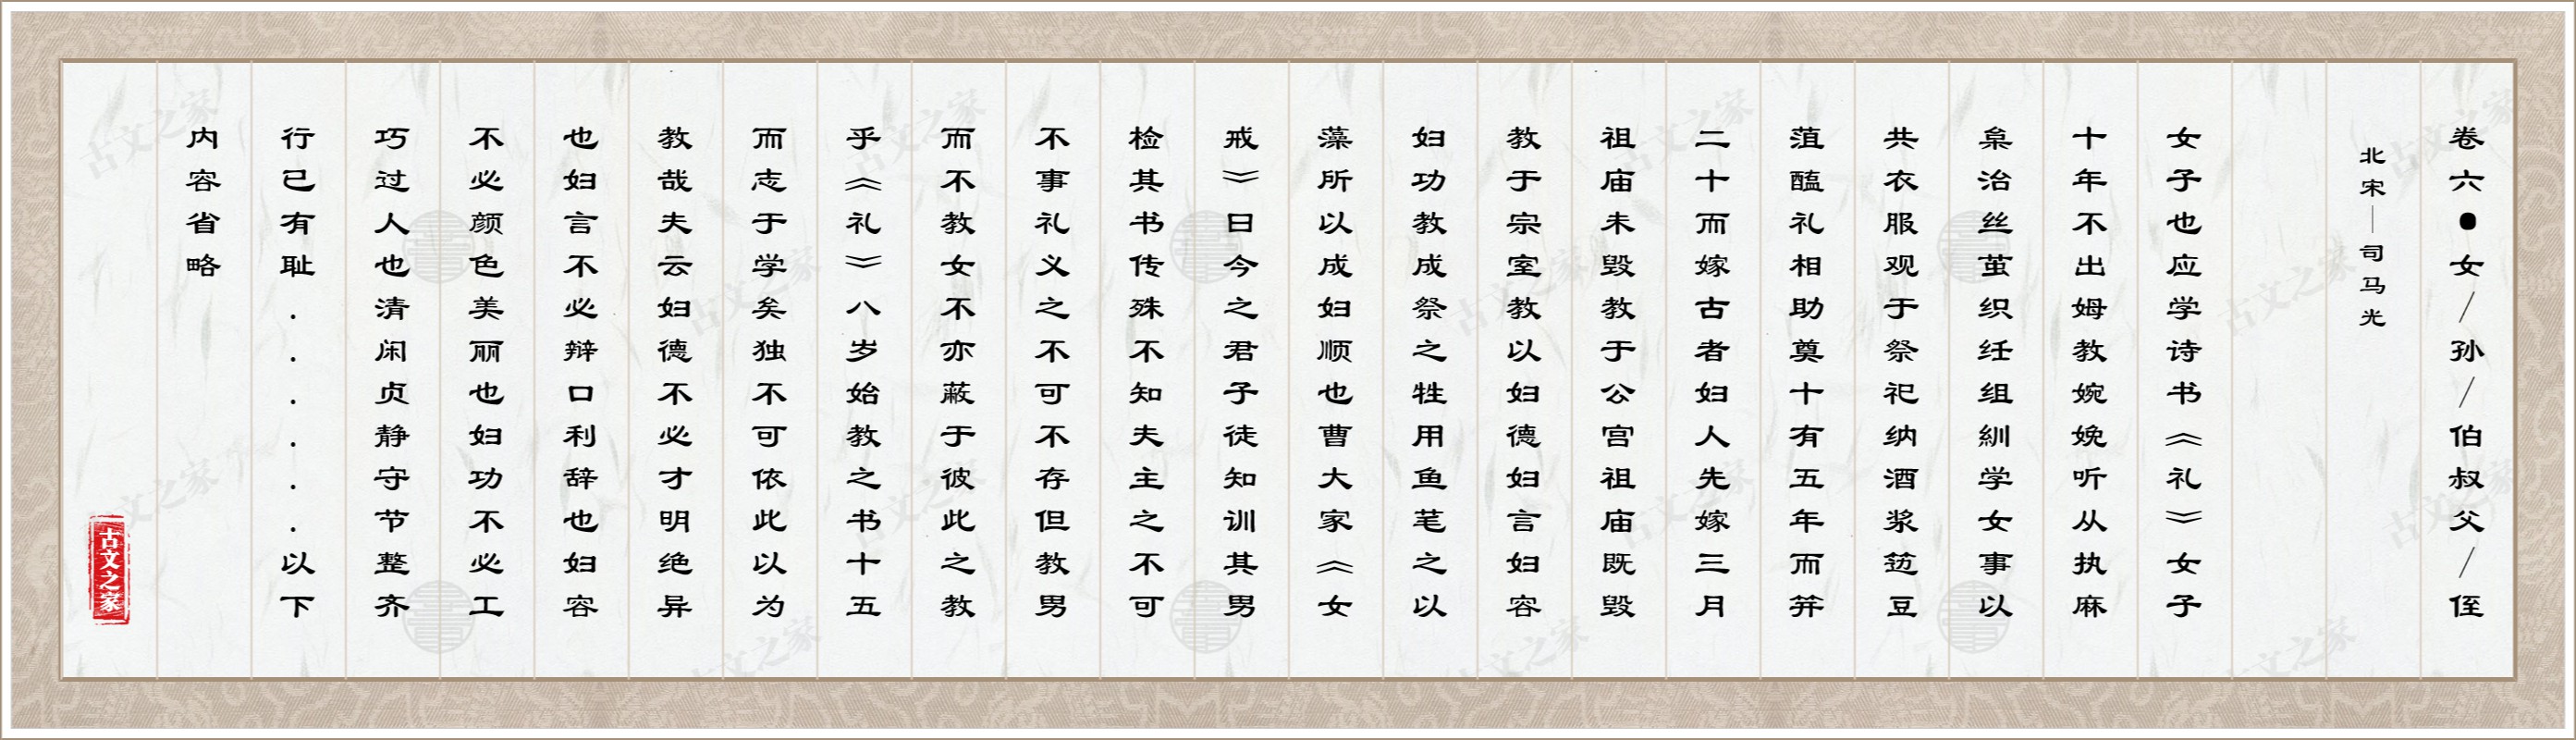 卷六●女/孙/伯叔父/侄
北宋—司马光
女子也应学诗书《礼》女子
十年不出姆教婉娩听从执麻
枲治丝茧织纴组紃学女事以
共衣服观于祭祀纳酒浆笾豆
菹醢礼相助奠十有五年而笄
二十而嫁古者妇人先嫁三月
祖庙未毁教于公宫祖庙既毁
教于宗室教以妇德妇言妇容
妇功教成祭之牲用鱼芼之以
藻所以成妇顺也曹大家《女
戒》曰今之君子徒知训其男
检其书传殊不知夫主之不可
不事礼义之不可不存但教男
而不教女不亦蔽于彼此之教
乎《礼》八岁始教之书十五
而志于学矣独不可依此以为
教哉夫云妇德不必才明绝异
也妇言不必辩口利辞也妇容
不必颜色美丽也妇功不必工
巧过人也清闲贞静守节整齐
行己有耻......以下
内容省略
古文之家